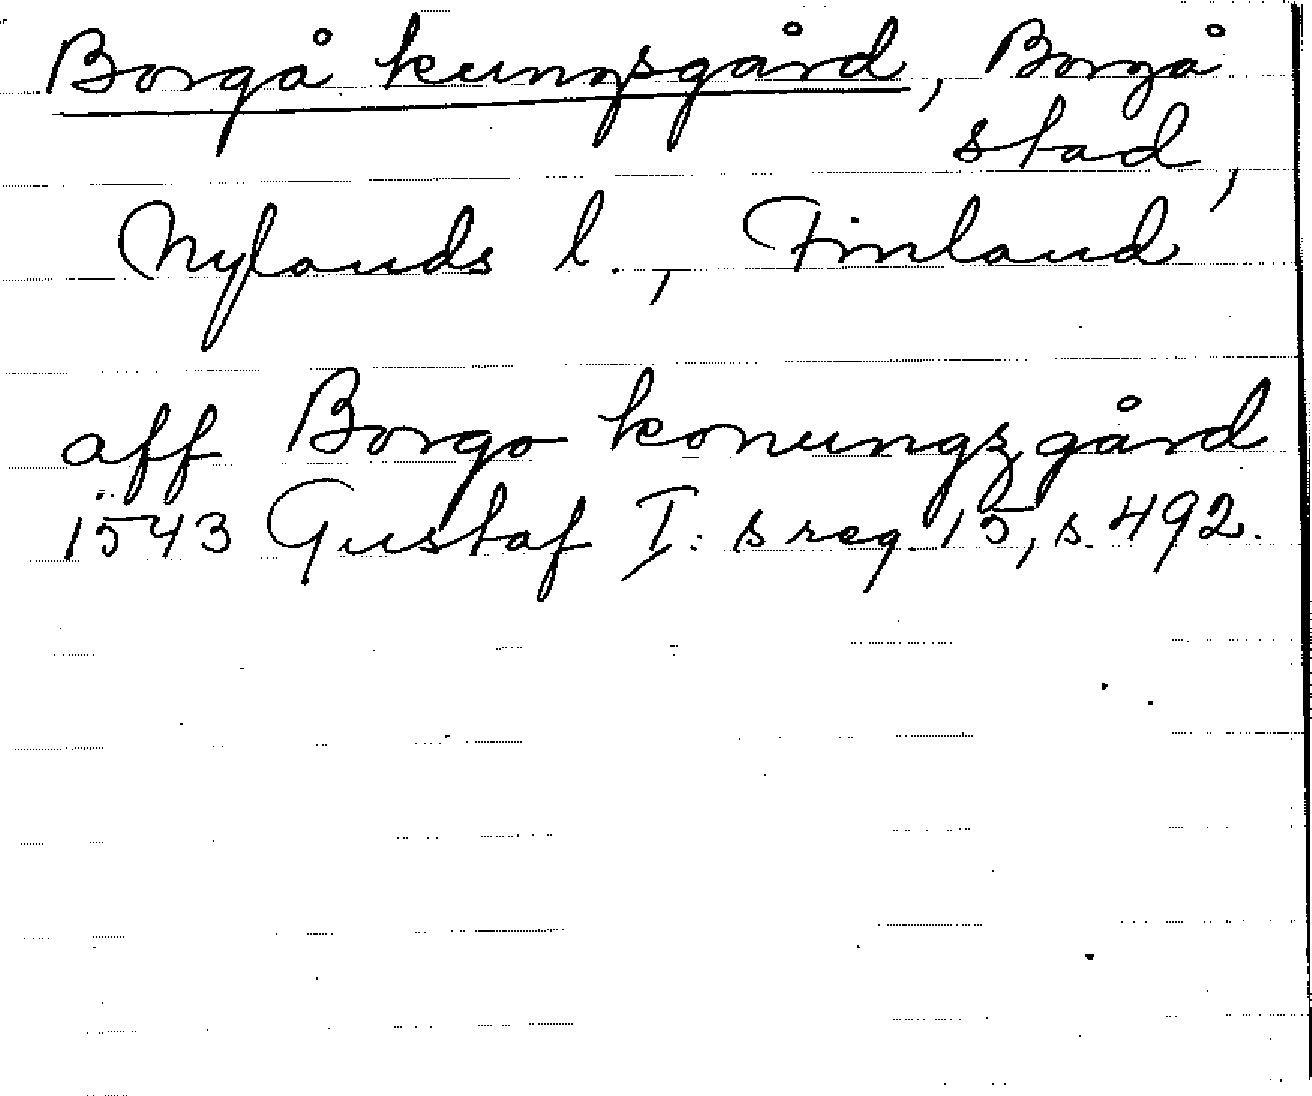 Borgå kungsgård, Borgå
stad,
Nylands l., Finland
aff Borgo konungzgård
1543 Gustaf I:s reg. 15, s. 492.